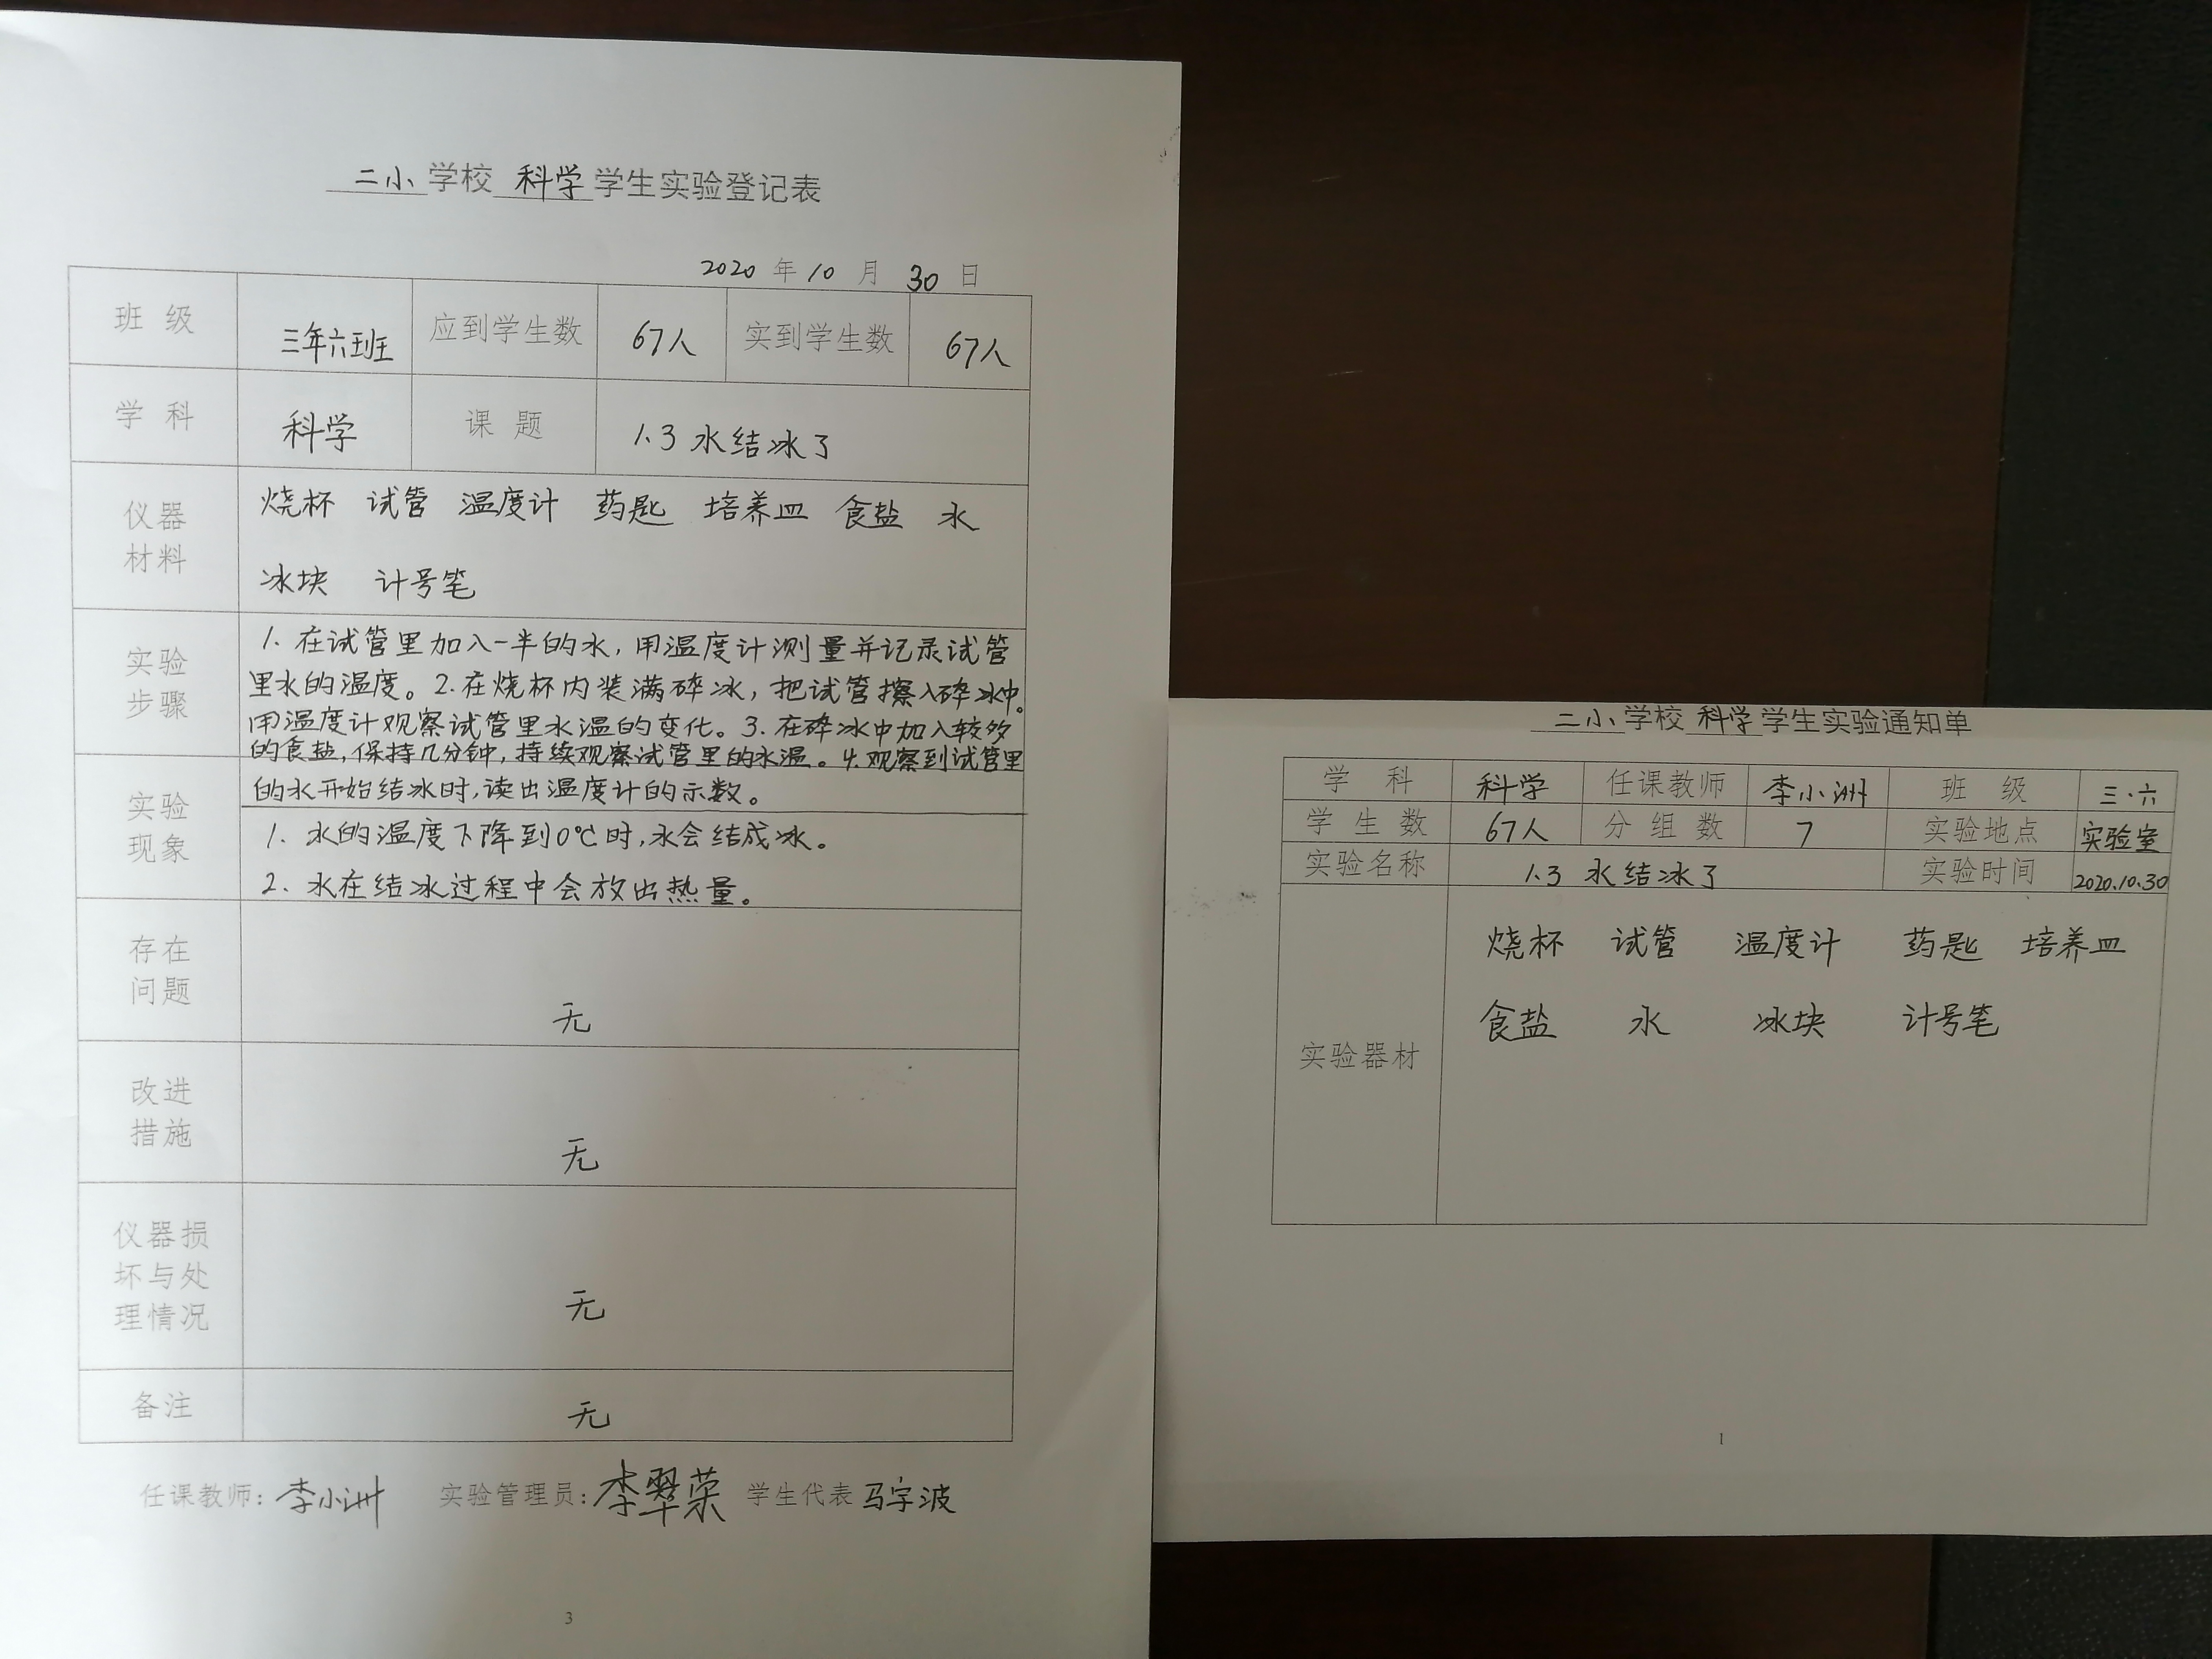 二小 学校 科学 学生实验登记表
2020 年 10 月 30 日
班 级 三年六班 应到学生数 67人 实到学生数 67人
学 科 科学 课 题 1.3 水结冰了
仪器
材料
烧杯 试管 温度计 药匙 培养皿 食盐 水
冰块 计号笔
实验
步骤
1. 在试管里加入一半的水，用温度计测量并记录试管
里水的温度。2.在烧杯内装满碎冰，把试管擦入碎冰中。
用温度计观察试管里水温的变化。3.在碎冰中加入较多
的食盐，保持几分钟，持续观察试管里的水温。4.观察到试管里
的水开始结冰时，读出温度计的示数。
实验
现象
1. 水的温度下降到0℃时，水会结成冰。
2. 水在结冰过程中会放出热量。
存在
问题
无
改进
措施
无
仪器损
坏与处
理情况
无
备注 无
任课教师：李小洲 实验管理员：李翠荣 学生代表 马宇波
3
二小 学校 科学 学生实验通知单
学 科 科学 任课教师 李小洲 班 级 三·六
学 生 数 67人 分 组 数 7 实验地点 实验室
实验名称 1.3 水结冰了 实验时间 2020.10.30
实验器材
烧杯 试管 温度计 药匙 培养皿
食盐 水 冰块 计号笔
1